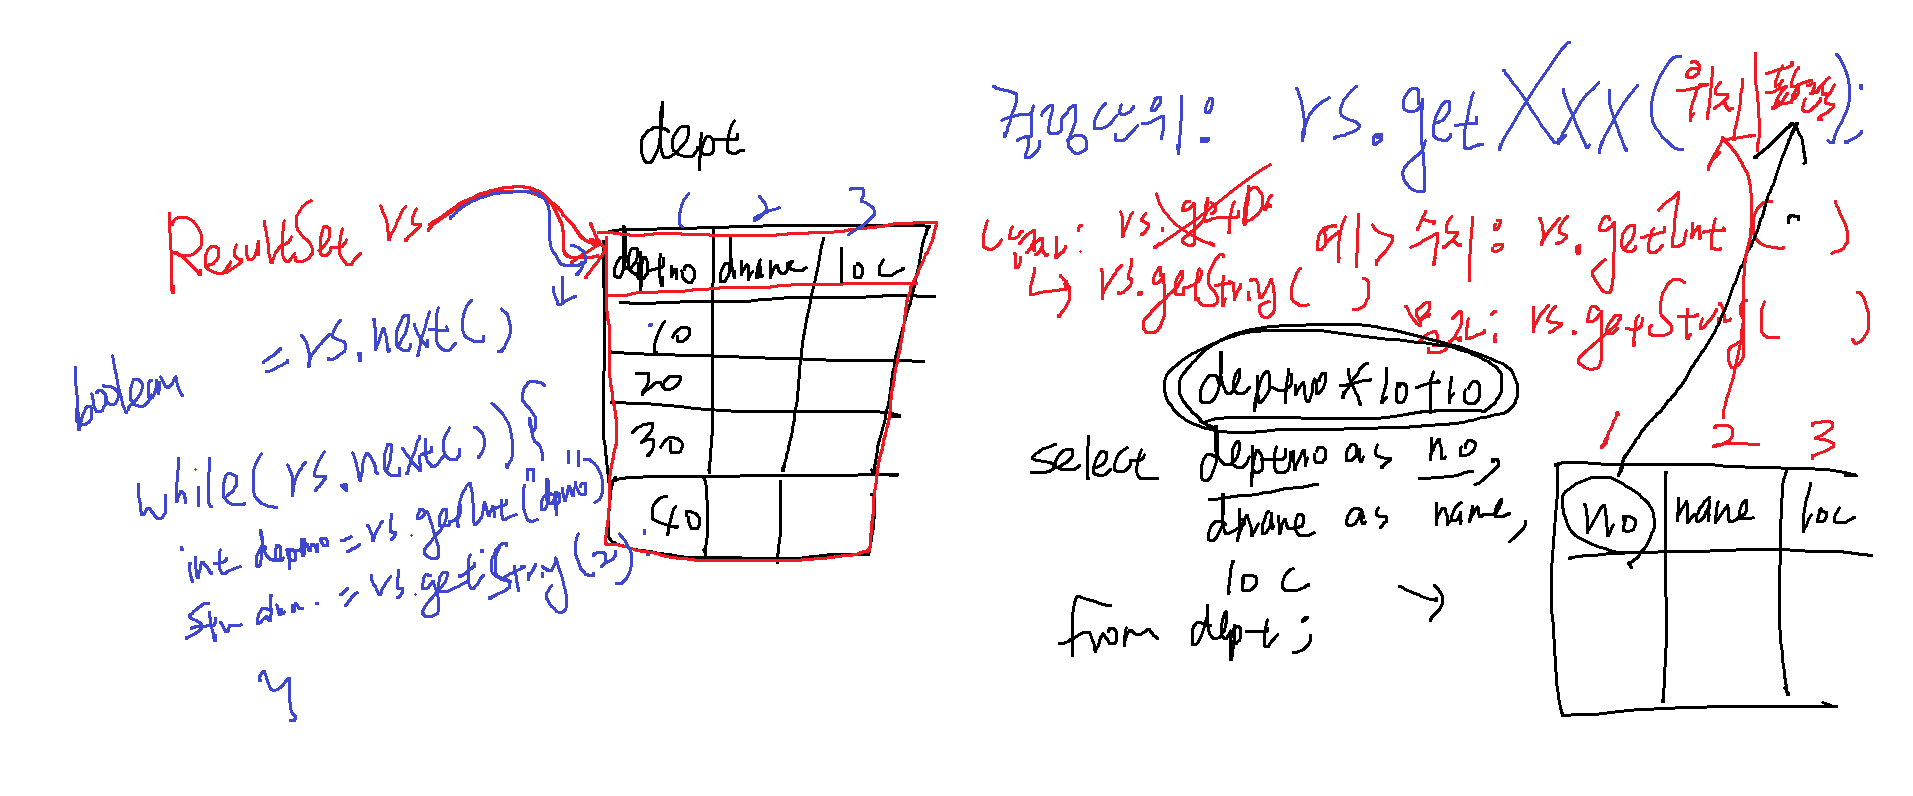 dept
ResultSet rs
1 2 3
deptno dname loc
10
20
30
40
boolean = rs.next()
while(rs.next()){
int deptno = rs.getInt("deptno")
= rs.getString(2);
}
컬럼단위: rs.getXxx(위치|);
날짜: rs.getDa
↳ rs.getString( )
예> 숫자: rs.getInt (" )
문자: rs.getString( )
deptno*10+10
select deptno as no,
dname as name,
loc
from dept;
→
1 2 3
no name loc